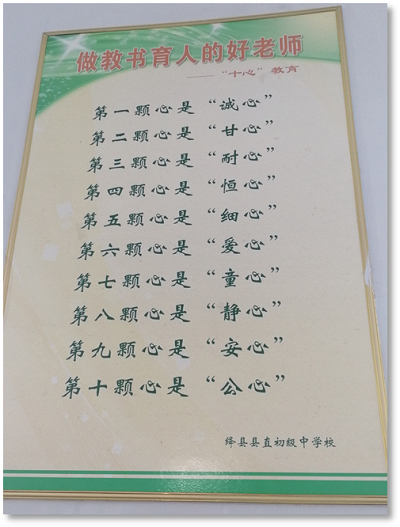 做教书育人的好老师
——“十心”教育
第一颗心是“诚心”
第二颗心是“甘心”
第三颗心是“耐心”
第四颗心是“恒心”
第五颗心是“细心”
第六颗心是“爱心”
第七颗心是“童心”
第八颗心是“静心”
第九颗心是“安心”
第十颗心是“公心”
绛县县直初级中学校